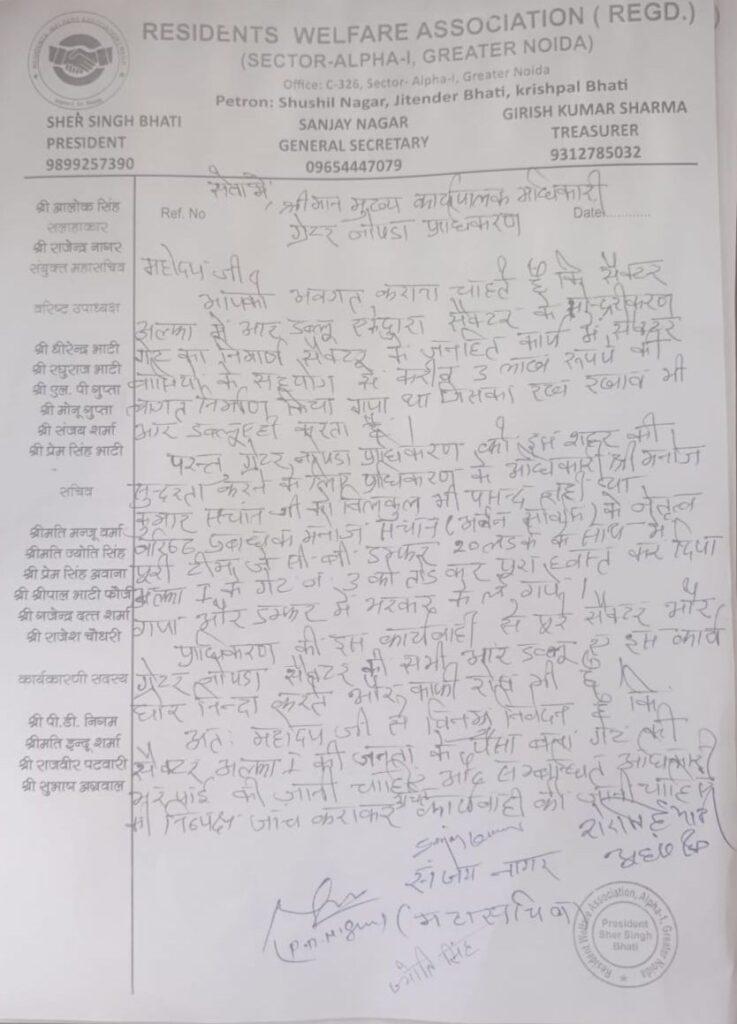 RESIDENTS WELFARE ASSOCIATION ( REGD.)
(SECTOR-ALPHA-I, GREATER NOIDA)
Office: C-326, Sector- Alpha-I, Greater Noida
Petron: Shushil Nagar, Jitender Bhati, krishpal Bhati
SHER SINGH BHATI
PRESIDENT
9899257390
SANJAY NAGAR
GENERAL SECRETARY
09654447079
GIRISH KUMAR SHARMA
TREASURER
9312785032
श्री आलोक सिंह
सलाहाकार
श्री राजेन्द्र नागर
संयुक्त महासचिव
वरिष्ट उपाध्यक्ष
श्री धीरेन्द्र भाटी
श्री रघुराज भाटी
श्री एल. पी गुप्ता
श्री मोनू गुप्ता
श्री संजय शर्मा
श्री प्रेम सिंह भाटी
सचिव
श्रीमति मन्जू वर्मा
श्रीमति ज्योति सिंह
श्री प्रेम सिंह अवाना
श्री श्रीपाल भाटी फौजी
श्री बृजेन्द्र दत्त शर्मा
श्री राजेश चौधरी
कार्यकारणी सदस्य
श्री पी.डी. निगम
श्रीमति इन्दू शर्मा
श्री राजवीर पटवारी
श्री सुभाष अग्रवाल
Ref. No
Date
सेवा में,
श्रीमान मुख्य कार्यपालक अधिकारी
ग्रेटर नोएडा प्राधिकरण
महोदय जी,
आपको अवगत कराना चाहते है कि सैक्टर
अल्फा में आर डब्लू ए द्वारा सैक्टर के सौन्द्रीकरण
गेट का निर्माण सैक्टर के जनहित कार्य में सैक्टर
वासियो के सहयोग से करीब 3 लाख रूपये की
लागत निर्माण किया गया था जिसका रख रखाव भी
आर डब्लू ए ही करता है।
परन्तु ग्रेटर नोएडा प्राधिकरण को इस शहर की
सुन्दरता करने के लिए प्राधिकरण के अधिकारी श्री मनोज
कुमार सचान जी को बिलकुल भी पसन्द नही था
वरिष्ठ प्रबन्धक मनोज सचान (अर्बन सर्विस) के नेतृत्व
पूरी टीम जे सी बी डम्फर 20 लडके के साथ में
अल्फा I के गेट न 3 को तोड कर पूरा ध्वस्त कर दिया
गया और डम्फर में भरकर के ले गये।
प्राधिकरण की इस कार्यवाही से पूरे सैक्टर और
ग्रेटर नोएडा सैक्टर की सभी आर डब्लू ए इस कार्य
घोर निन्दा करते और काफी रोष भी है।
अतः महोदय जी से विनम्र निवेदन है कि
सैक्टर अल्फा I की जनता के पैसा बना गेट की
भरपाई की जानी चाहिए और सम्बन्धित अधिकारी
की निष्पक्ष जांच कराकर कार्यवाही की जानी चाहिए
संजय नागर
(महासचिव)
(P.D. Nigam)
ज्योति सिंह
Resident Welfare Association, Alpha-1, Greater Noida
President
Sher Singh
Bhati